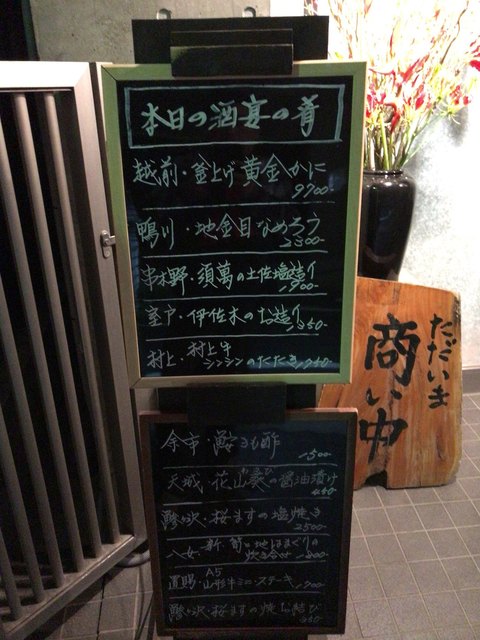 本日の酒宴の肴
越前・釜上げ黄金かに
9700-
鴨川・地金目なめろう
2300-
串木野・須萬の土佐塩造り
1900-
室戸・伊佐木のお造り
1350-
村上・村上牛
シンシンのたたき
余市・鮟きも酢
1500
天城・花山葵の醤油漬け
わさび
鰺ヶ沢・桜ますの塩焼き
2500-
八女・新筍と地はまぐりの
炊き合せ 1800-
道賜・A5
山形牛ミニ・ステーキ
鰺ヶ沢・桜ますの焼お結び
ただいま
商い中